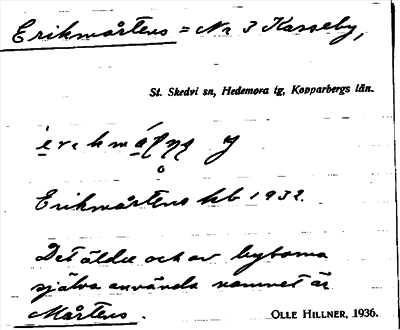 Erikmårtens = Nr 3 Kasseby,
St. Skedvi sn, Hedemora tg, Kopparbergs län.
Erikmårtens hb 1932.
Det äldre och av byborna
själva använda namnet är
Mårtens.
OLLE HILLNER, 1936.